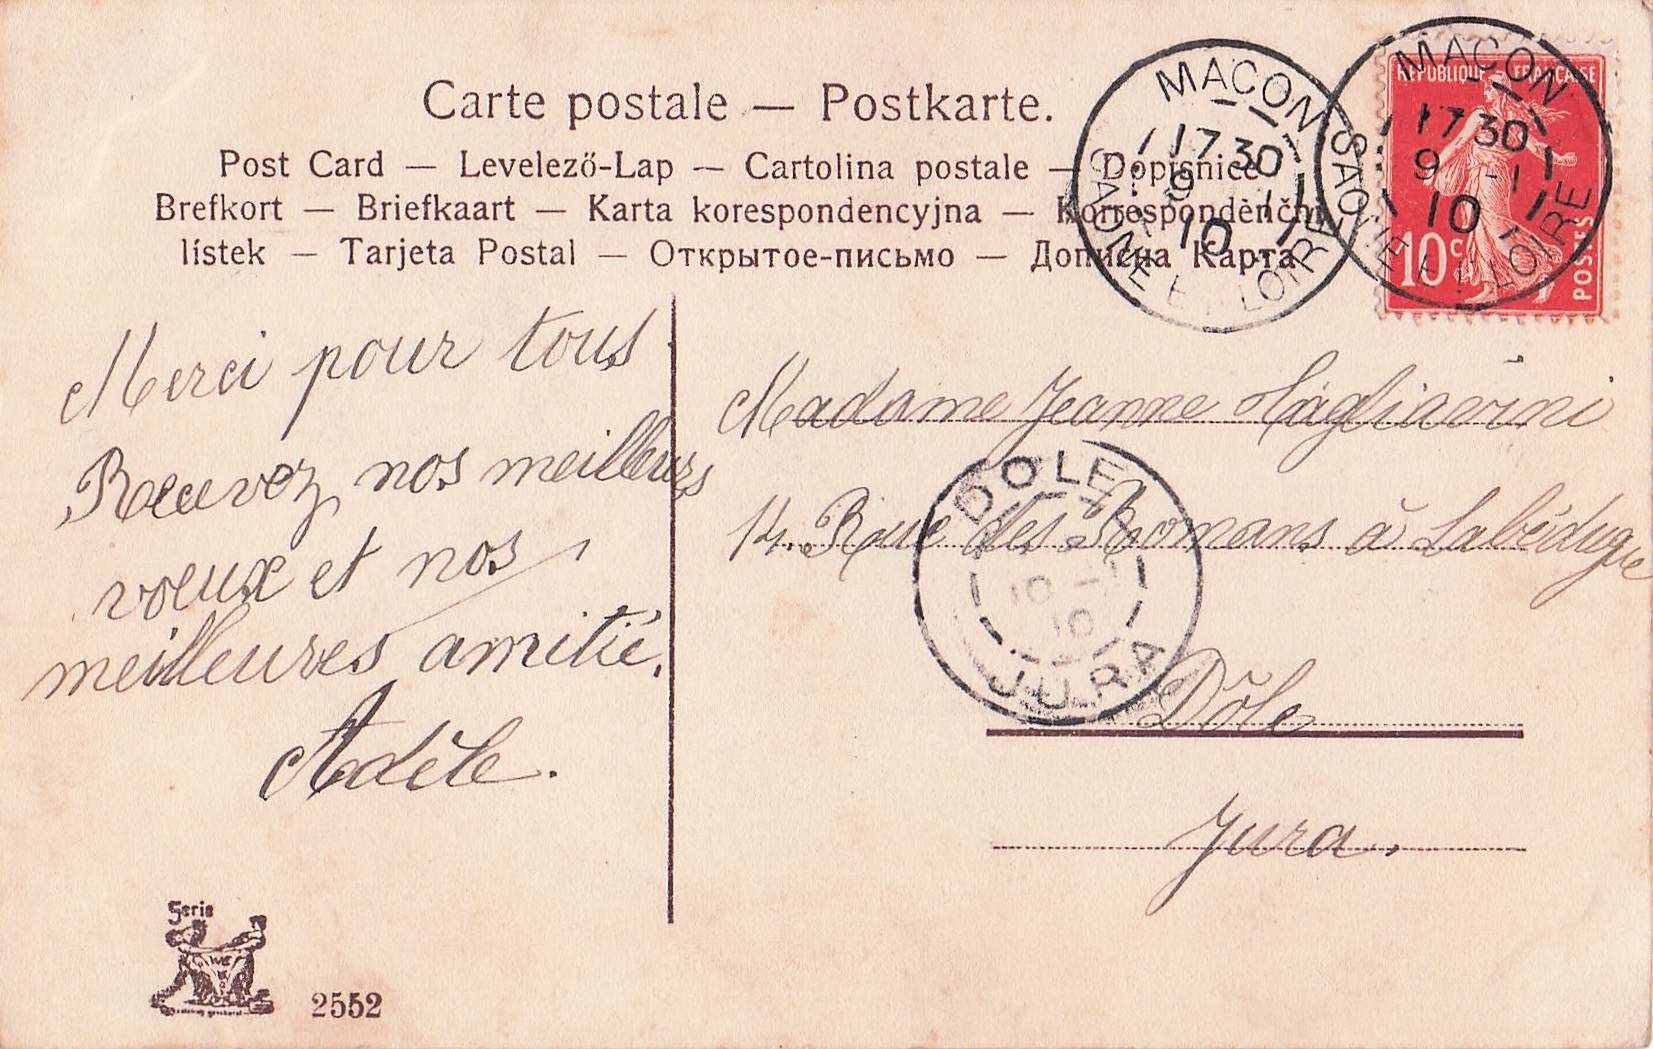 Carte postale — Postkarte.
Post Card — Levelező-Lap — Cartolina postale — Dopisnice
Brefkort — Briefkaart — Karta korespondencyjna — Korrespondènčni
lístek — Tarjeta Postal — Открытое-письмо — Дописна Карта
MACON
17 30
9 -1
10
SAONE ET LOIRE
MACON
17 30
9 -1
10
SAONE ET LOIRE
REPUBLIQUE FRANÇAISE
10c
POSTES
Merci pour tous
Recevez nos meilleurs
voeux et nos
meilleures amitié.
Adèle.
Madame Jeanne Tagliavini
14. Rue des Romans à Labédugue
Dôle
Jura.
DOLE
10 -1
10
JURA
Serie
2552